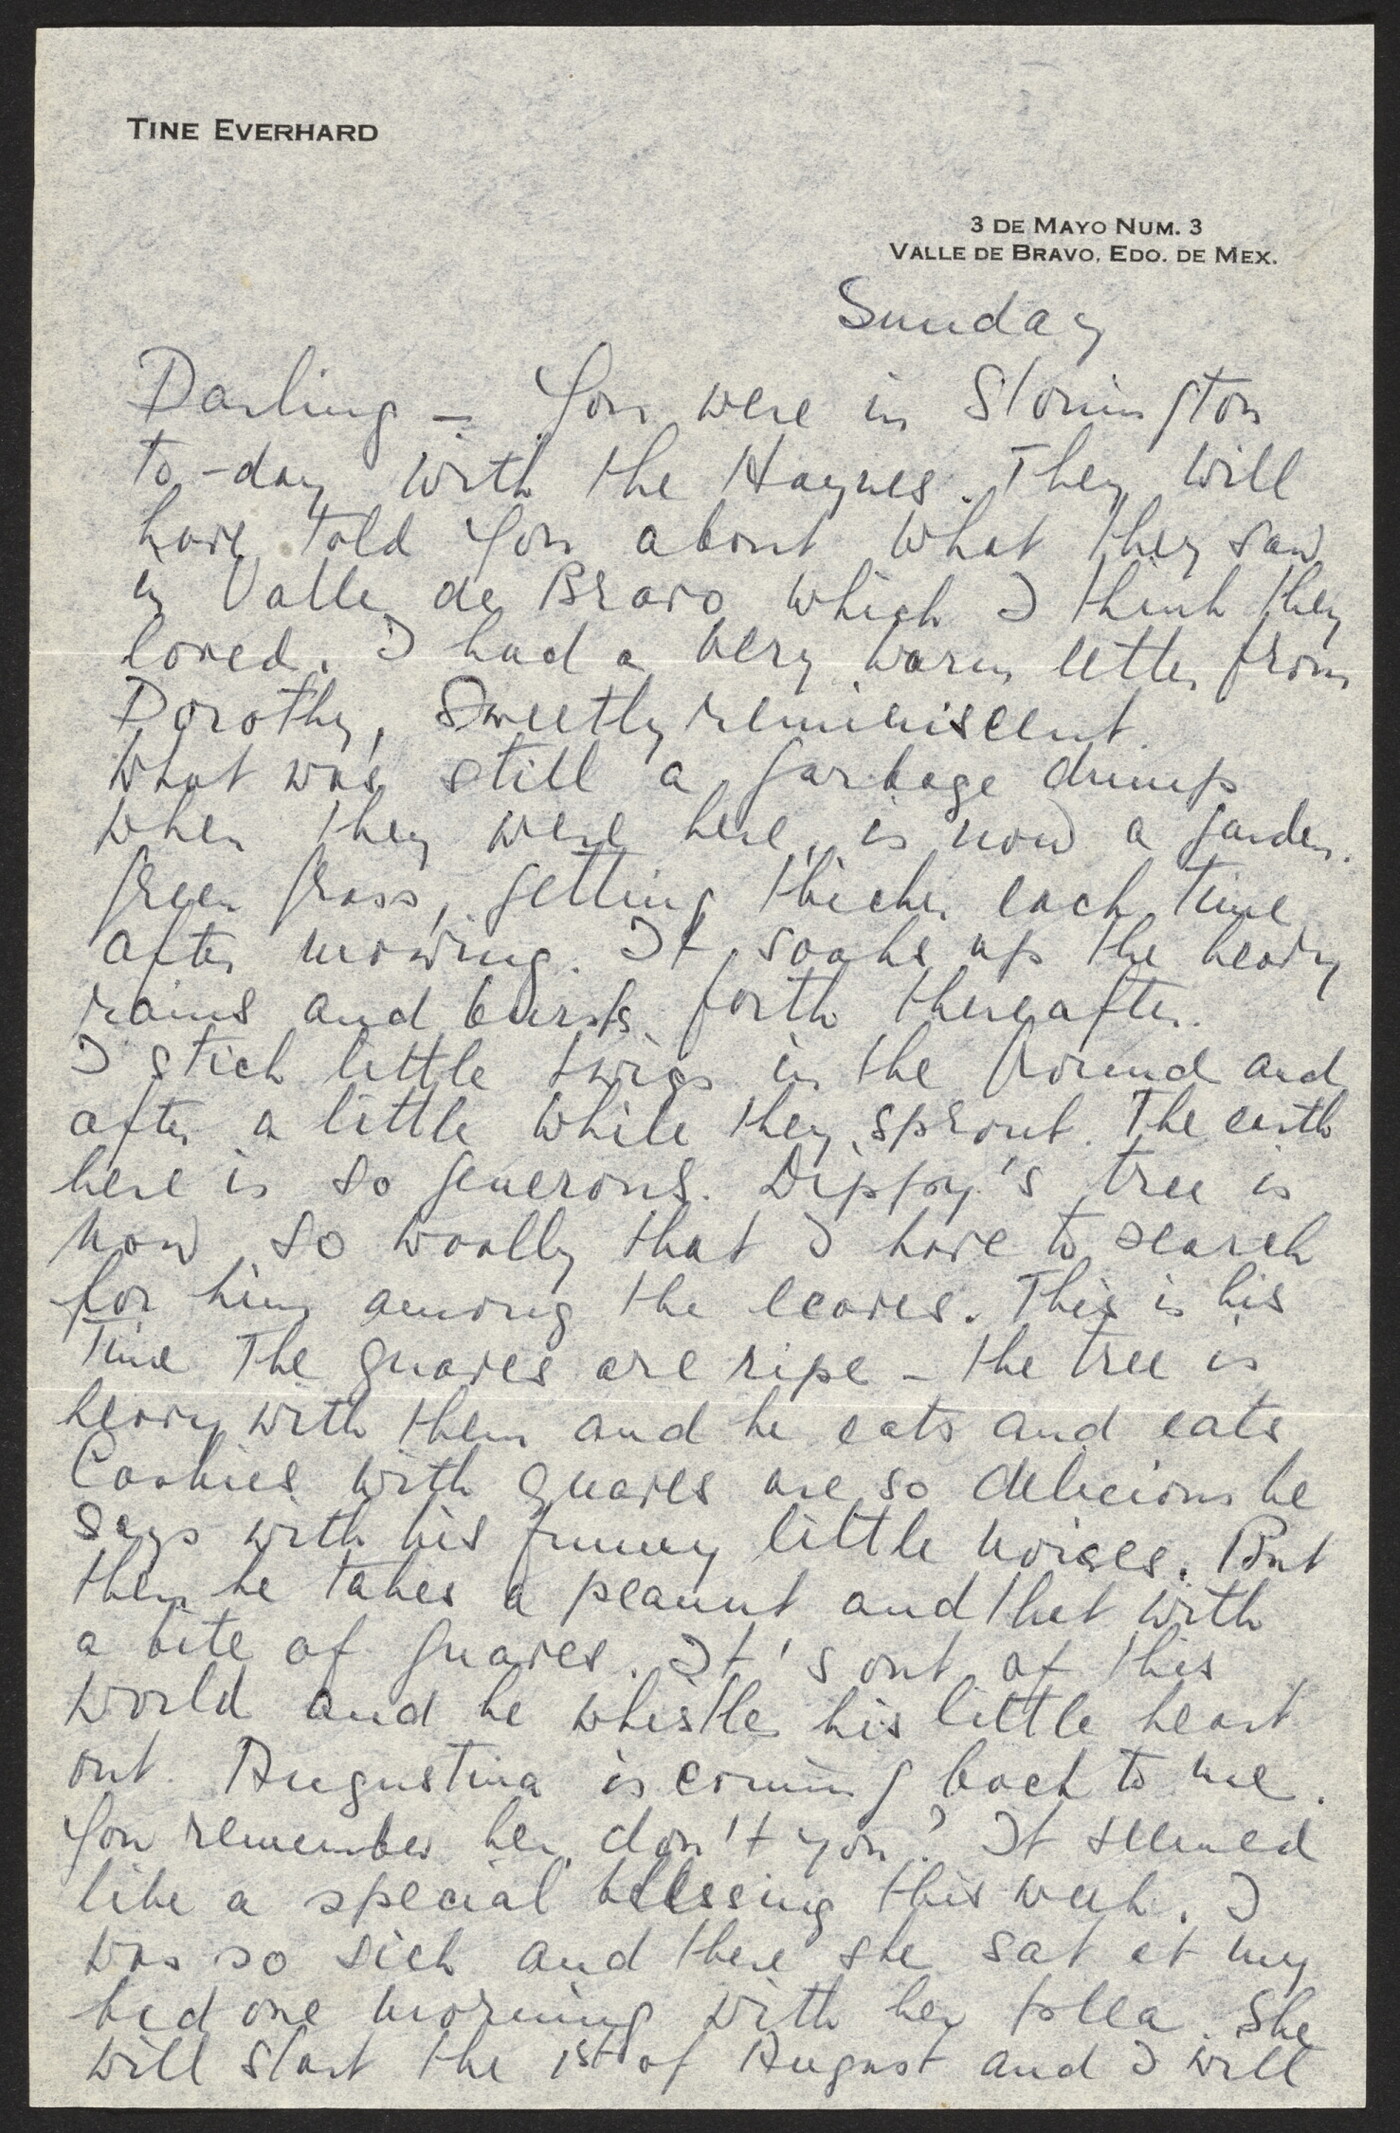 TINE EVERHARD
3 DE MAYO NUM. 3
VALLE DE BRAVO, EDO. DE MEX.
Sunday
Darling – You were in Stonington
to-day with the Haynes. They will
have told you about what they saw
in Valle de Bravo which I think they
loved. I had a very warm letter from
Dorothy, sweetly reminiscent.
What was still a garbage dump
when they were here, is now a garden.
Green grass, getting thicker each time
after mowing. It soaks up the heavy
rains and bursts forth thereafter.
I stick little twigs in the ground and
after a little while they sprout. The earth
here is so generous. Dippy's tree is
now so woolly that I have to search
for him among the leaves. This is his
time The guaves are ripe – the tree is
heavy with them and he eats and eats
Cookies with guaves are so delicious he
says with his funny little noises. But
then he takes a peanut and that with
a bite of guaves. It's out of this
world and he whistles his little heart
out. Augustina is coming back to me.
You remember her, don't you? It seemed
like a special blessing this week. I
was so sick and there she sat at my
bed one morning with her plea. She
will start the 1st of August and I will